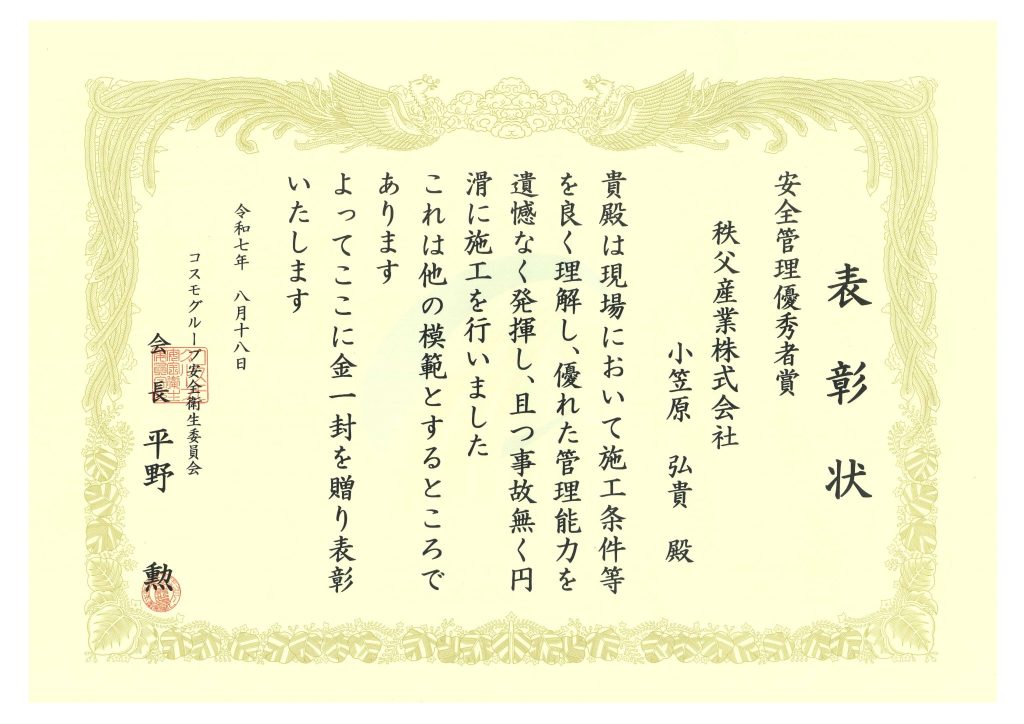 表彰状
安全管理優秀者賞
秩父産業株式会社
小笠原 弘貴 殿
貴殿は現場において施工条件等
を良く理解し、優れた管理能力を
遺憾なく発揮し、且つ事故無く円
滑に施工を行いました
これは他の模範とするところで
あります
よってここに金一封を贈り表彰
いたします
令和七年 八月十八日
コスモグループ安全衛生委員会
会長 平野 勲